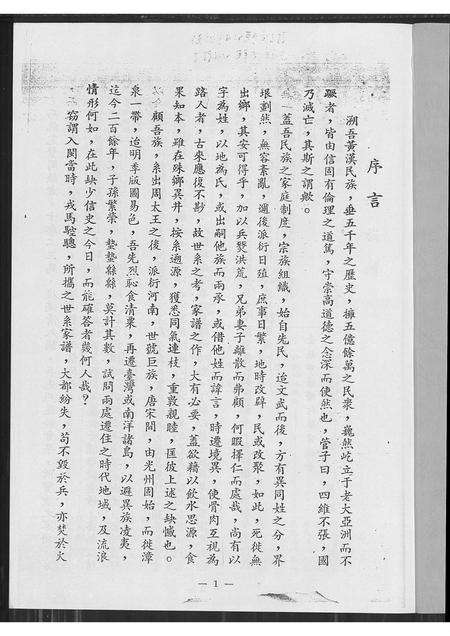 序言
溯吾黃漢民族，垂五千年之歷史，擁五億餘萬之民衆，巍然屹立于老大亞洲而不
蹶者，皆由信固有倫理之道篤，守崇高道德之念深而使然也，管子曰，四維不張，國
乃滅亡，其斯之謂歟。
蓋吾民族之家庭制度，宗族組織，始自先民，迨文武而後，方有異同姓之分，界
垠劃然，無容紊亂，邇後派衍日殖，庶事日繁，地時改辟，民或改聚，如此，死徙無
出鄉，其安可得乎，加以兵燹洪荒，兄弟妻子離散而弗顧，何暇擇仁而處哉，尚有以
字為姓，以地為氏，或出嗣他族而兩承，或借他姓而諱言，時遷境異，使骨肉互視為
路人者，古來應復不尠，故世系之考，家譜之作，大有必要，蓋欲藉以飲水思源，食
果知本，雖在殊鄉異井，按系遡源，獲悉同氣連枝，重敦親睦，匡彼上述之缺憾也。
顧吾族，系出周太王之後，派衍河南，世號巨族，唐宋間，由光州固始，而徙漳
泉一帶，迨明季版國易色，吾先烈恥食清粟，再遷臺灣或南洋諸島，以避異族凌夷，
迄今二百餘年，子孫繁榮，蟄蟄緜緜，莫計其數，試問兩處遷住之時代地域，及流浪
情形何如，在此缺少信史之今日，而能確答者幾何人哉？
竊謂入閩當時，戎馬驄驄，所攜之世系家譜，大都紛失，苟不毀於兵，亦焚於火
— 1 —